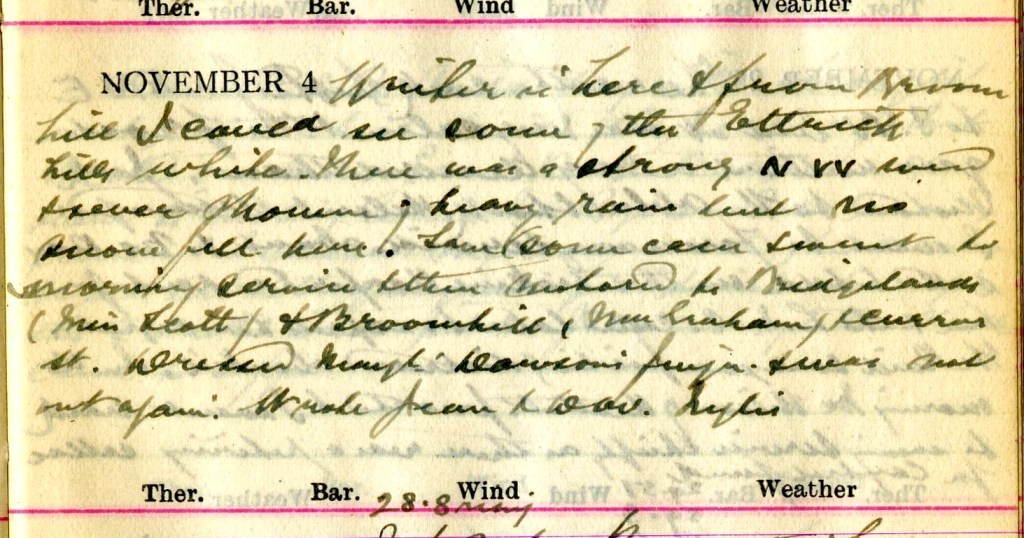 Ther. Bar. Wind Weather
NOVEMBER 4 Winter is here & from Broom
hill I could see some of the Ettrick
hills white. There was a strong N W wind
& sever showers of heavy rain but no
snow fell here. Saw some cases & went to
morning service & then motored to Bridgelands
(Miss Scott) & Broomhill (Mrs Graham) &
st. Dressed Dawson's finger. & was not
out again. Wrote Jean & Dav.
Ther. Bar. Wind Weather
28.8